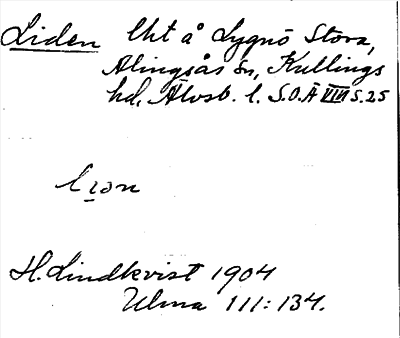 Liden lht å Lygnö Stora,
Alingsås sn, Kullings
hd, Älvsb. l. S.O.Ä VIII s. 25
lıɘn
H. Lindkvist 1904
Ulma 111: 134.